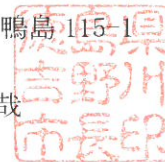 鴨島 115-1
哉
徳島県
吉野川
市長印